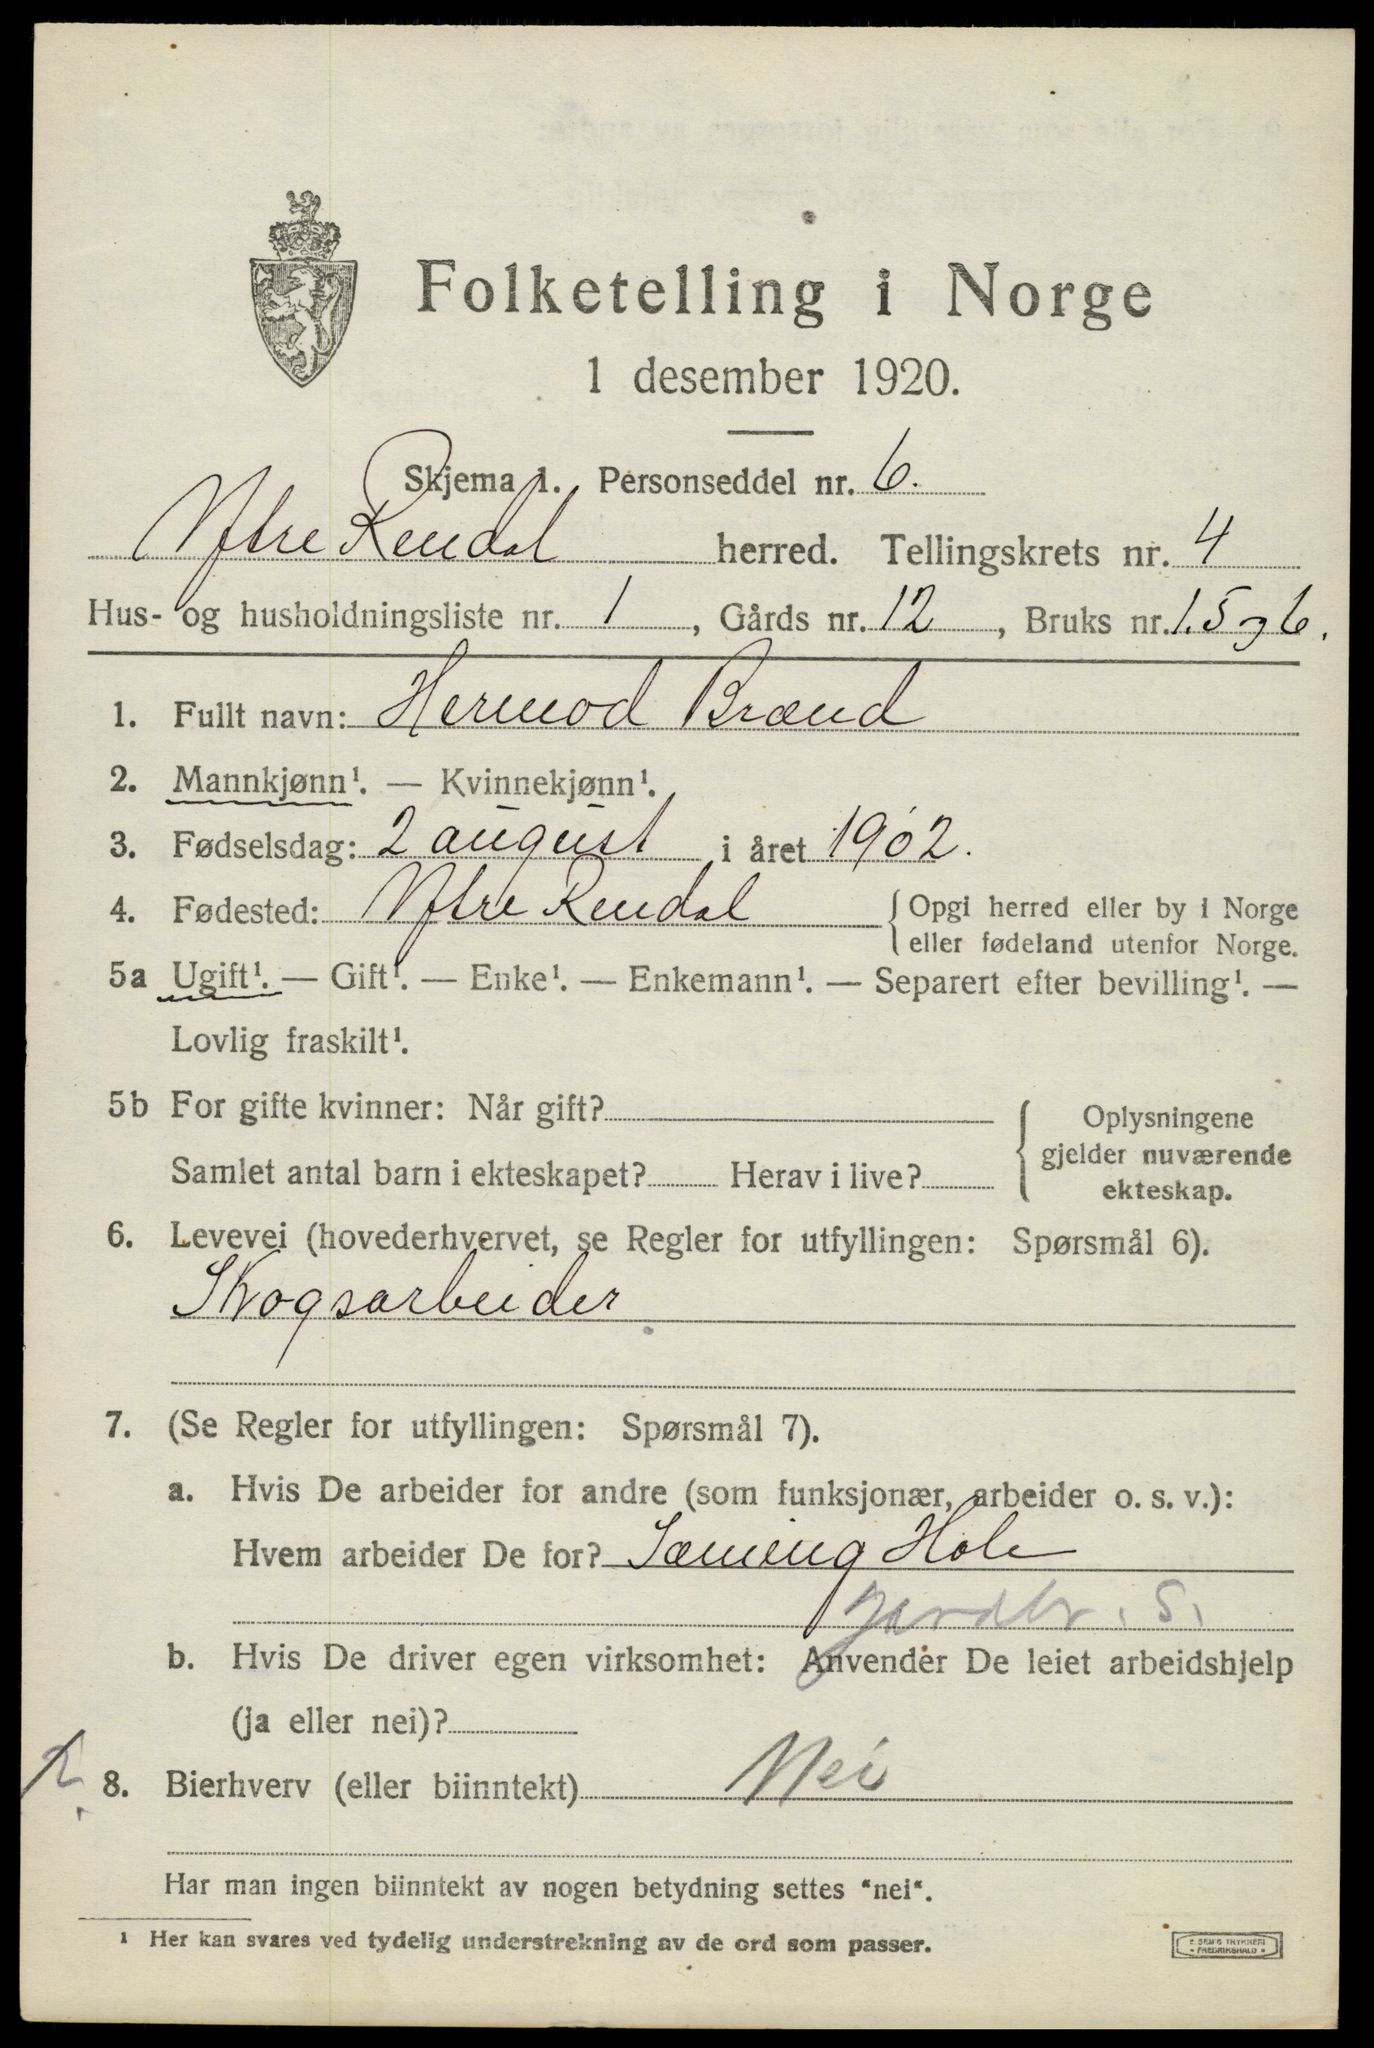 Folketelling i Norge
1 desember 1920.
Skjema 1. Personseddel nr. 6.
Ytre Rendal herred. Tellingskrets nr. 4
Hus- og husholdningsliste nr. 1, Gårds nr. 12, Bruks nr. 1.5 og 6.
1. Fullt navn: Hermod Brænd
2. Mannkjønn¹. — Kvinnekjønn¹.
3. Fødselsdag: 2 august i året 1902.
4. Fødested: Ytre Rendal {Opgi herred eller by i Norge
eller fødeland utenfor Norge.
5a Ugift¹. — Gift¹. — Enke¹. — Enkemann¹. — Separert efter bevilling¹. —
Lovlig fraskilt¹.
5b For gifte kvinner: Når gift?
Samlet antal barn i ekteskapet? Herav i live?
{Oplysningene
gjelder nuværende
ekteskap.
6. Levevei (hovederhvervet, se Regler for utfyllingen: Spørsmål 6).
Skogsarbeider
7. (Se Regler for utfyllingen: Spørsmål 7).
a. Hvis De arbeider for andre (som funksjonær, arbeider o. s. v.):
Hvem arbeider De for? Sæming Hole
jordbr. S.
b. Hvis De driver egen virksomhet: Anvender De leiet arbeidshjelp
(ja eller nei)?
8. Bierhverv (eller biinntekt) Nei
Har man ingen biinntekt av nogen betydning settes "nei".
¹ Her kan svares ved tydelig understrekning av de ord som passer.
E. SEM'S TRYKKERI
• FREDRIKSHALD •